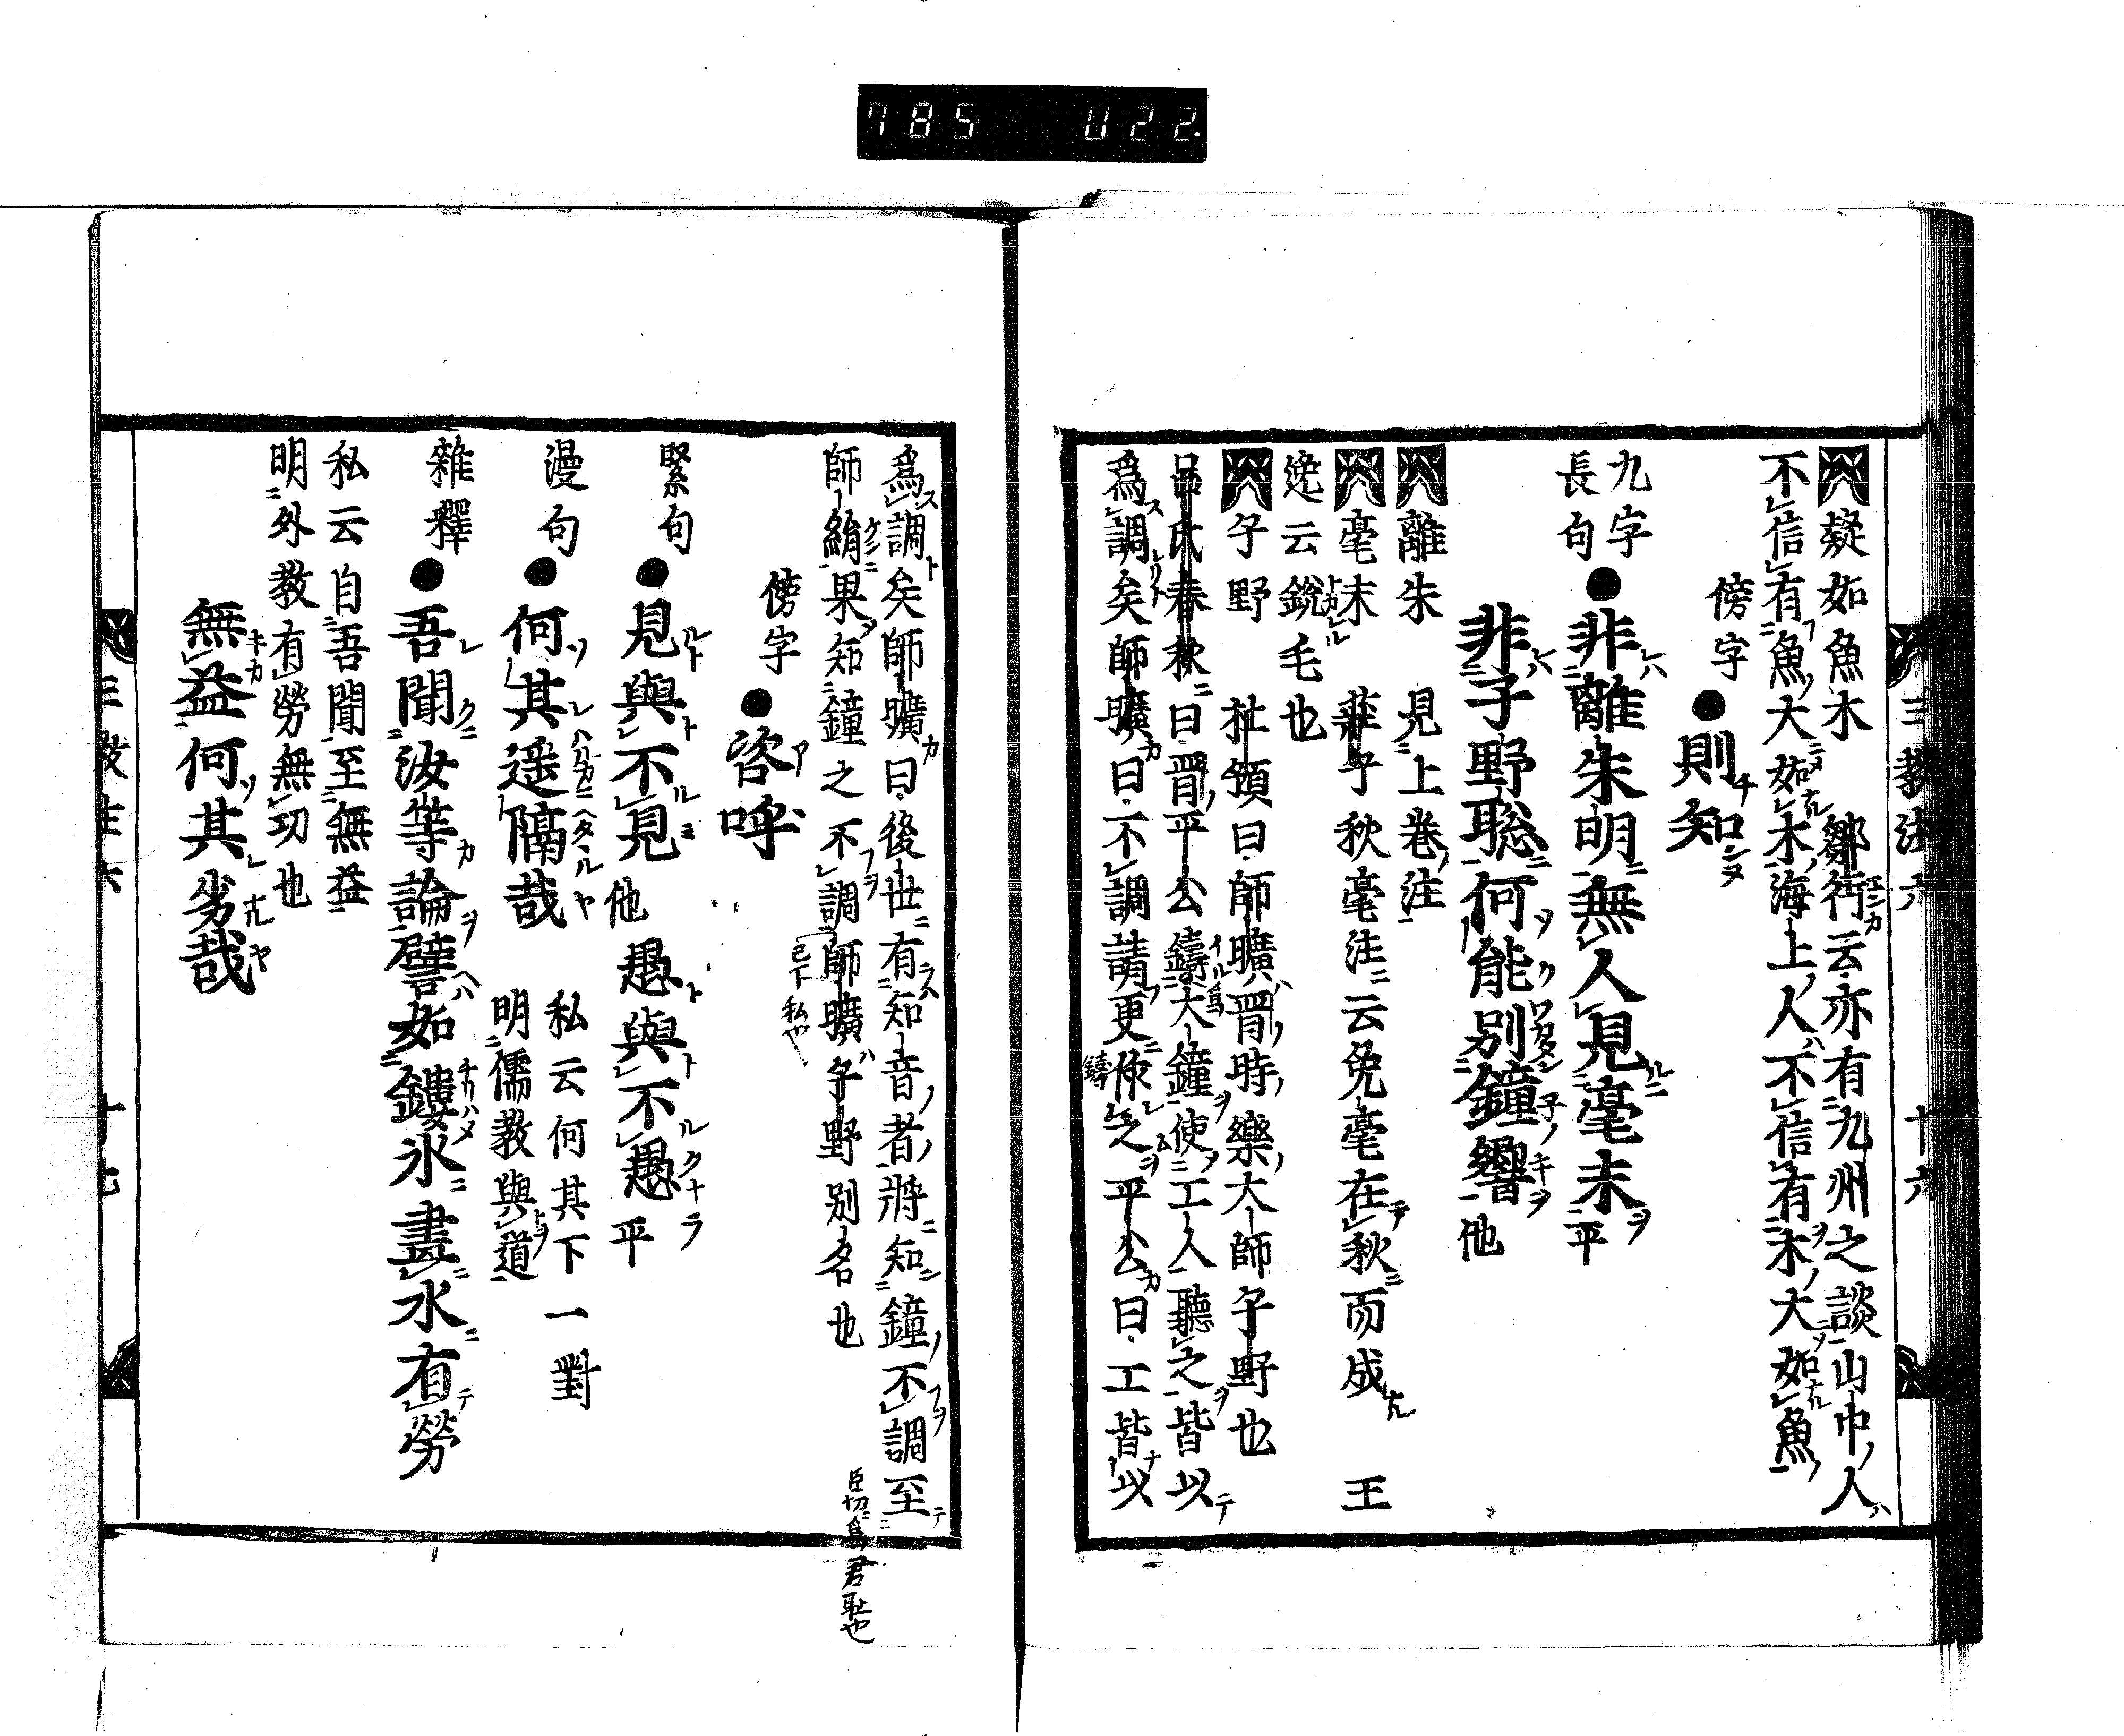 785 022
疑如魚木 鄒衍云亦有九州之談山中人
不信有魚大如木海上人不信有木大如魚
傍字●則知
九字
長句●非離朱明無人見毫末平
非子野聡何能別鐘響他
離朱 見上巻注
毫末 莊子秋毫注云兔毫在秋而成 王
逸云銳毛也
子野 杜預曰師曠晋時樂大師子野也
呂氏春秋曰晋平公鑄大鐘使工人聽之皆以
爲調矣師曠曰不調請更作之平公曰工皆以
鑄
三教 六 十六
爲調矣師曠曰後世有知音者將知鐘不調至
臣切爲君耻也
師絹果知鐘之不調師曠子野別名也
已下私也
傍字●咨呼
緊句●見與不見他愚與不愚平
漫句●何其遥隔哉 私云何其下一對
明儒教與道
雜釋●吾聞汝等論譬如鏤氷畫水有勞
私云自吾聞至無益
明外教有勞無功也
無益何其劣哉